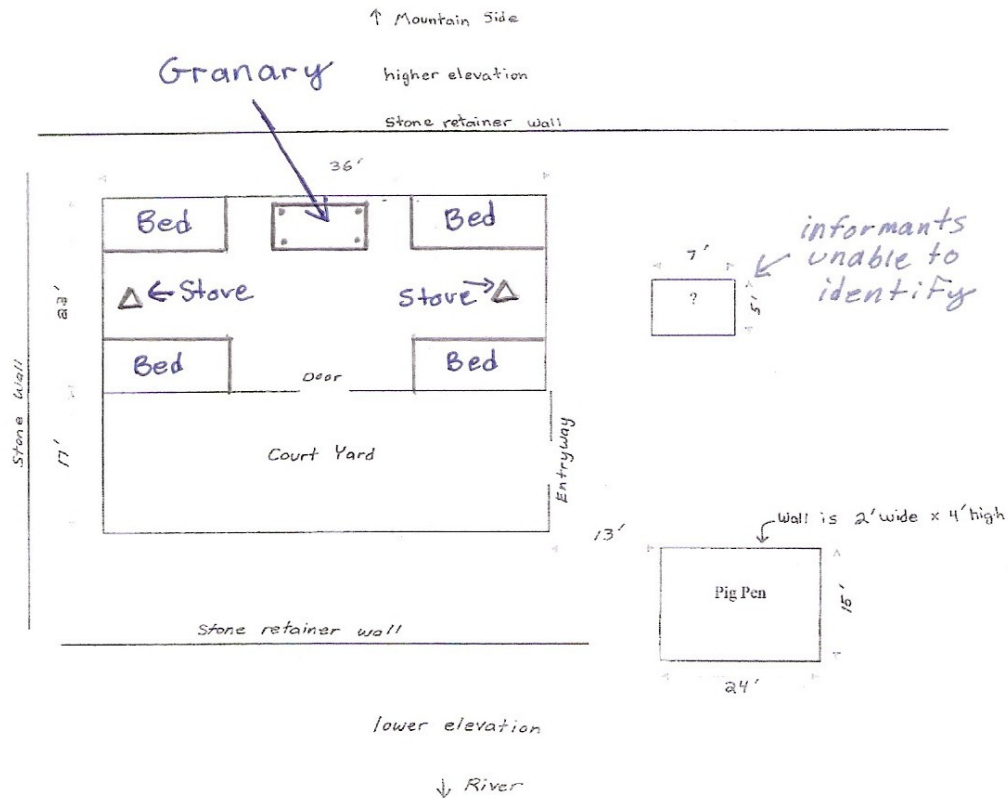 ↑ Mountain Side
Granary
higher elevation
Stone retainer wall
36'
Bed
Bed
22'
← Stove
Stove →
Bed
Bed
Door
Stone Wall
17'
Court Yard
Entryway
7'
?
5'
informants
unable to
identify
13'
Wall is 2' wide x 4' high
Pig Pen
15'
24'
Stone retainer wall
lower elevation
↓ River